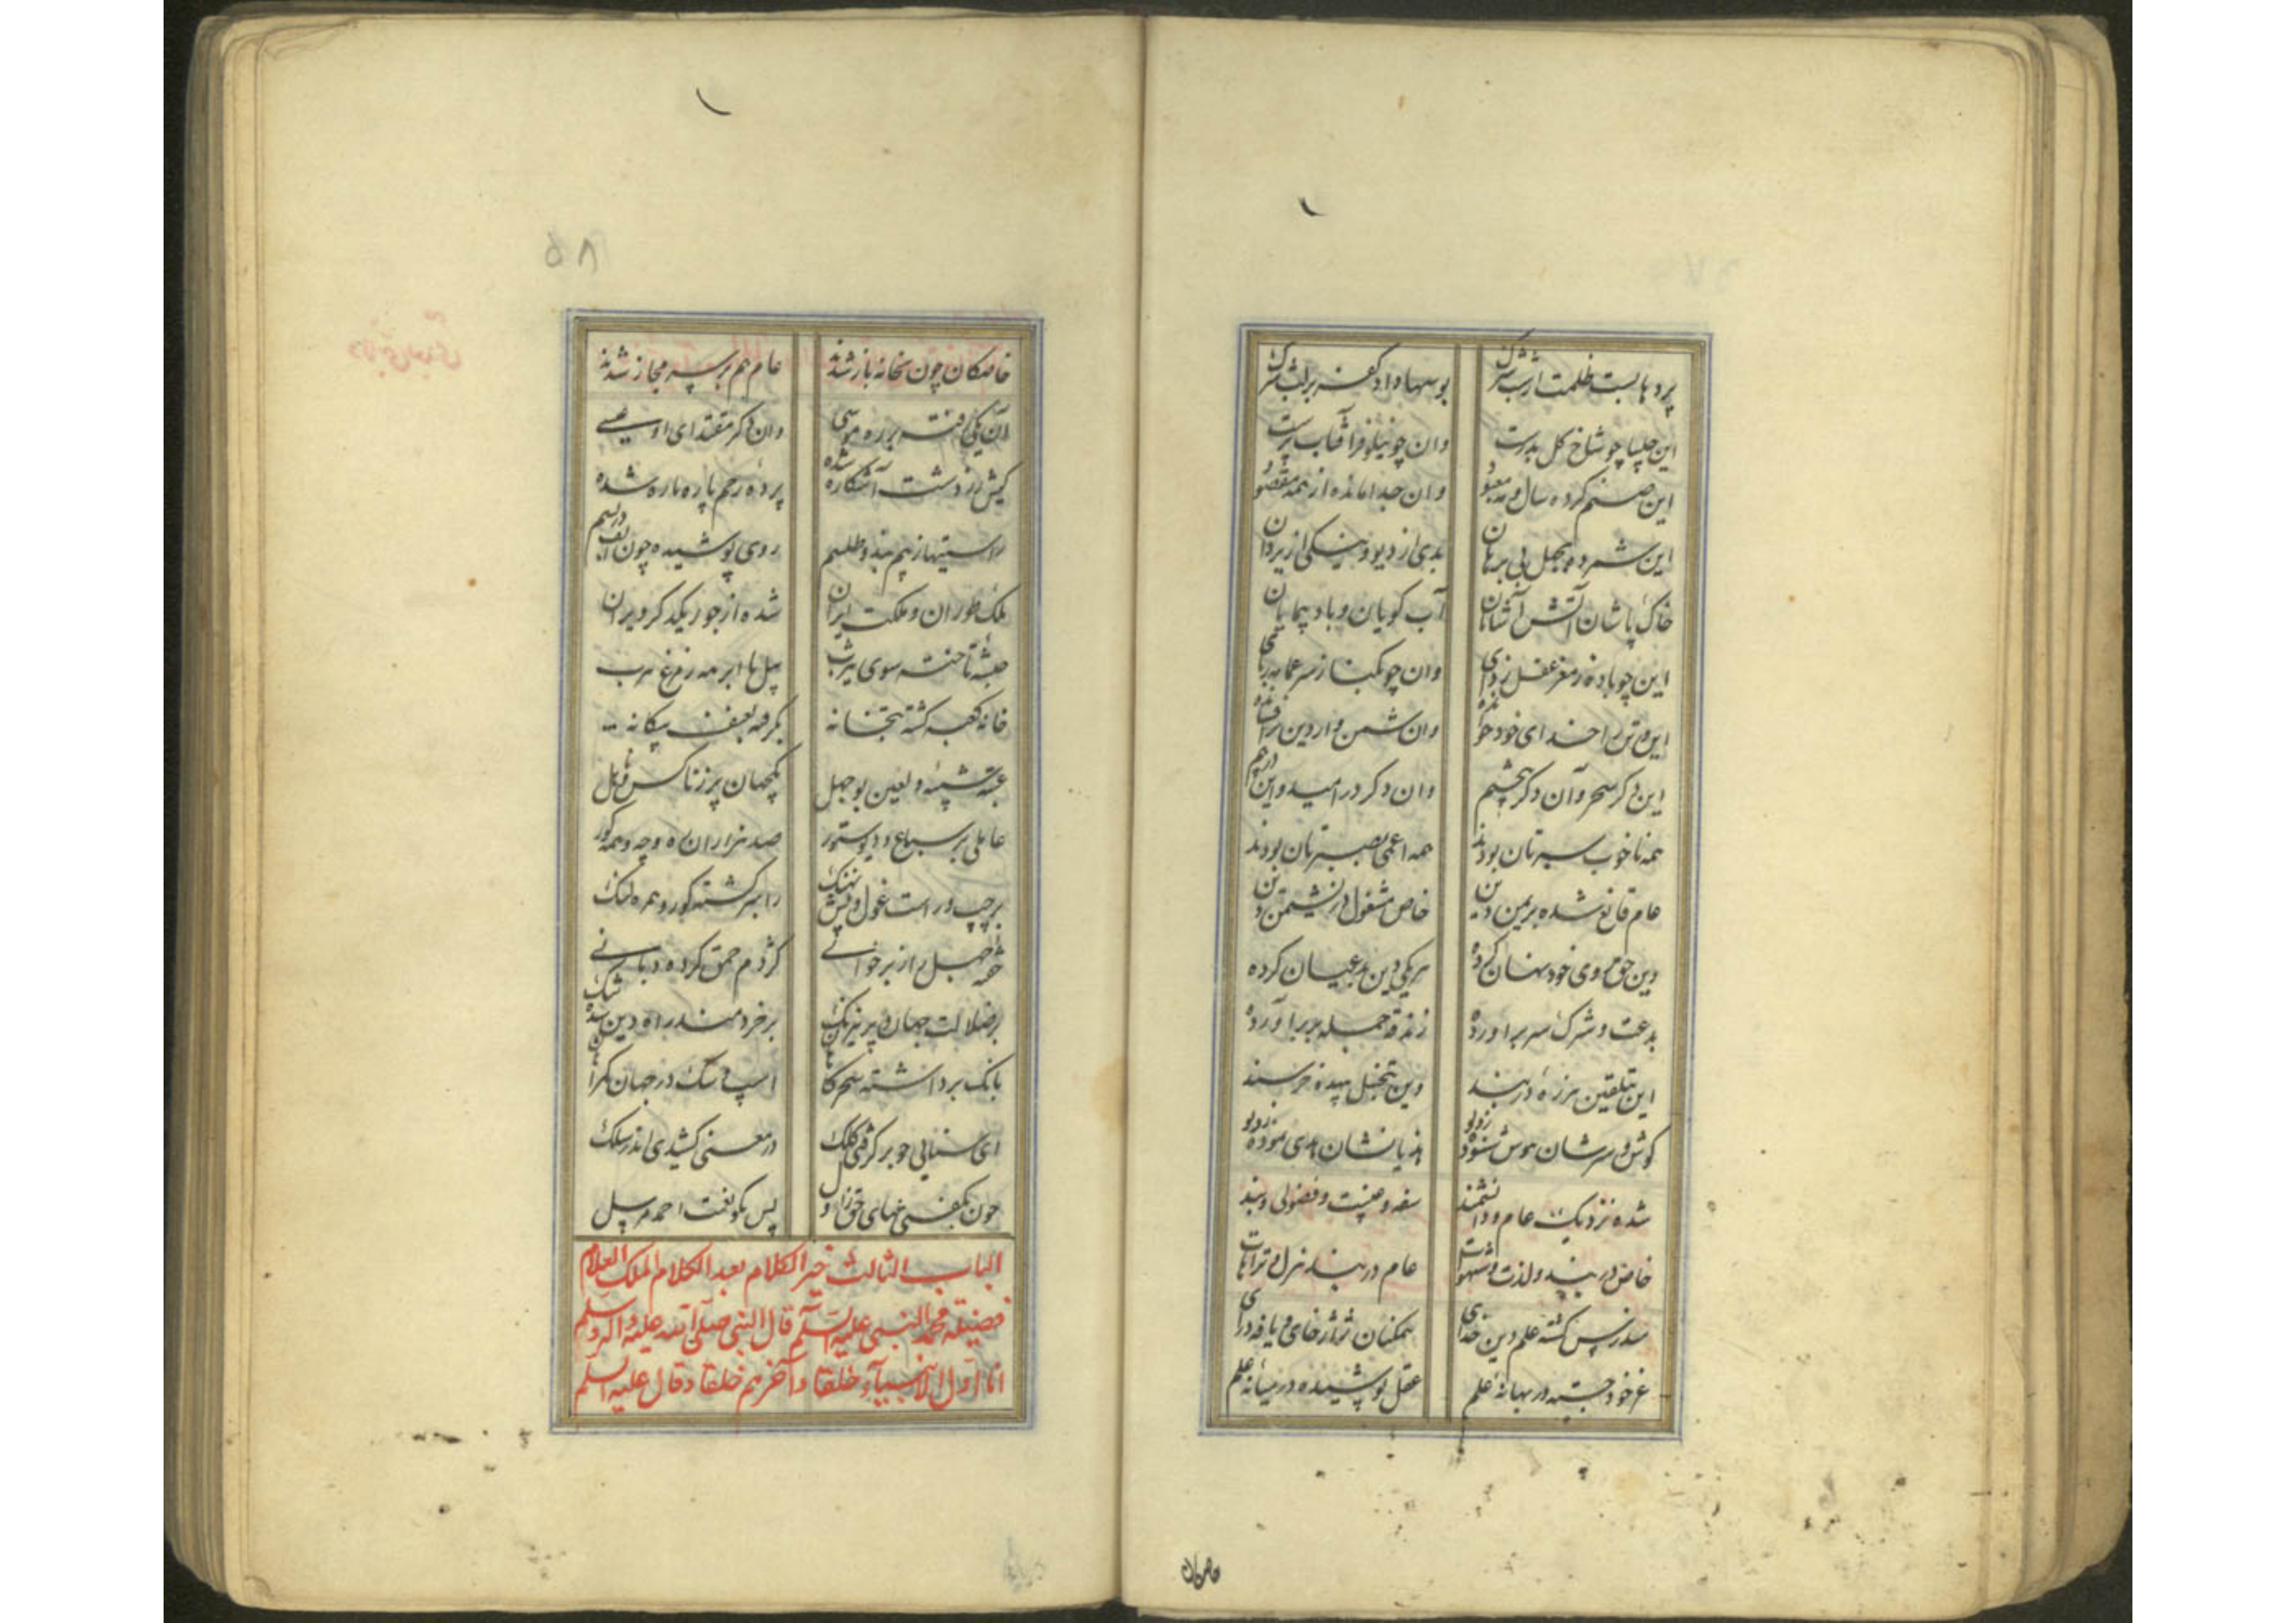 پردها بست ظلمت از شب شرک بوسها داد کفر بر لب شرک
این چلیپا چو شاخ گل بدست وان چو نیلوفر آفتاب پرست
این صنم کرده سال و مه معبود وان جدا مانده از همه مقصود
این شمرده بجهل بی برهان بدی از دیو و نیکی از یزدان
خاک پاشان آتش آشامان آب کوبان و باد پیمایان
این چو باده ز مغز عقل زدای وان چو نکبا ز سر عمامه ربای
این وثن را خدای خود خوانده وان شمن وار دین برافشانده
این دگر سحر و آن دگر تنجیم وان دگر در امید و این در بیم
همه ناخوب سیرتان بودند همه اعمی بصیرتان بودند
عام قانع شده بریمن دین خاص مشغول در نشیمن دین
دین حق روی خود نهان کرده هر یکی دین بد عیان کرده
بدعت و شرک سر برآورده زندقه جمله پر برآورده
این بتلقین هرزه در بند وین بتخییل بیهده خرسند
گوش سرشان بهوش شنوده زدیو هذیانشان هدی نموده زدیو
شده نزدیک عام و دانشمند سفه و غیبت و فضولی و بند
خاص در بند ولذت و شهوات عام در بند هزل و ترهات
مندرس گشته علم دین خدای همکنان ژاژخای و یافه درای
عز خود جسته در بهانهٔ علم عقل پوشیده در میانهٔ علم
خاصکان
۸۵
خاصکان چون بخانه باز شدند عام هم بر سر مجاز شدند
آن یکی فتنه بر ره موسی وان دگر مقتدای او عیسی
کیش زردشت آشکاره شده پردهٔ رحم پاره پاره شده
راستیها ز بیم بند و طلسم روی پوشیده چون الف در بسم
ملک توران و ملکت ایران شده از جور یکدگر ویران
حبشه تاخته سوی یثرب پیل با ابرهه ز مرغ هرب
خانه کعبه گشته بتخانه بگرفته بعنف بیگانه
عتبه شیبه و لعین بوجهل یکجهان پر ز ناکس و نااهل
عالمی پر سباع و دیو ستور صد هزاران ره و چه و همه کور
بر چپ و راست غول و پیش نهنگ راهبر گشته کور و همره لنگ
خفته جهل از برخوانی کژدم حمق کرده دبانی
بر ضلالت جهان و پر نیرنگ بر خردمند راه دین شده تنگ
بانگ برداشته سحرگاهان اسب و سگ در جهان گمراهان
ای سنائی چو برگرفتی کلک در معنی کشیدی اندر سلک
چون بگفتی ثنای حق ز اول پس بگو نعت احمد مرسل
الباب الثالث خیر الکلام بعد الکلام الملک العلام
فضیلة محمد النبی علیه السلم قال النبی صلی الله علیه و آله و سلم
انا اول الانبیآء خلقا و آخرهم خلقا و قال علیه السلم